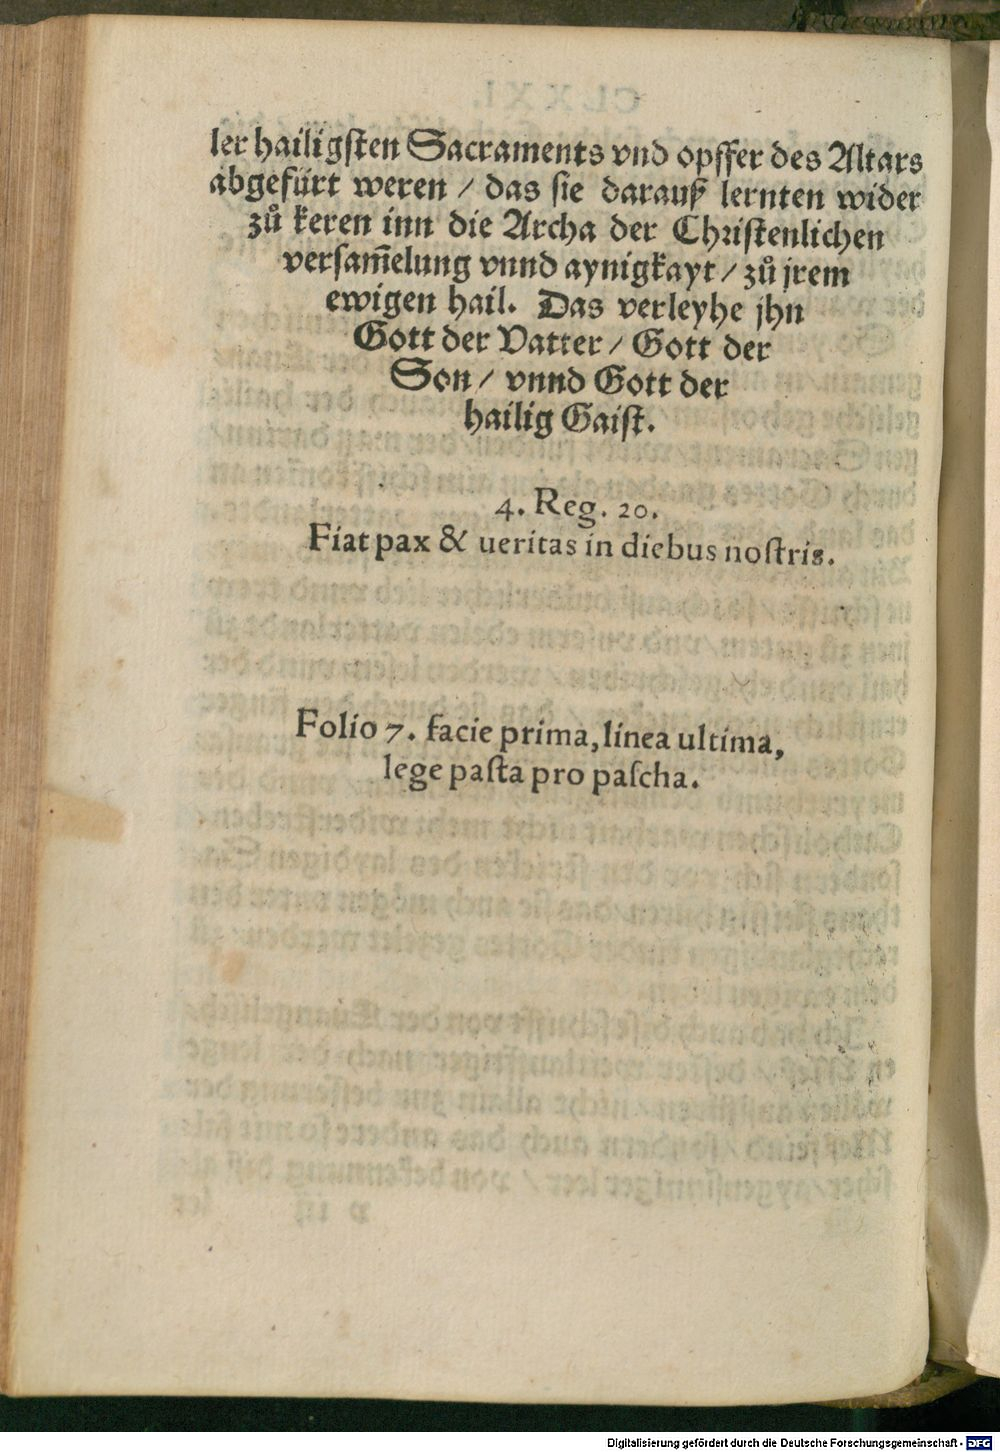 ler hailigſten Sacraments vnd opffer des Altars
abgefürt weren / das ſie darauß lernten wider
zů keren inn die Archa der Chriſtenlichen
verſam̃elung vnnd aynigkayt / zů jrem
ewigen hail. Das verleyhe jhn
Gott der Vatter / Gott der
Son / vnnd Gott der
hailig Gaiſt.
4. Reg. 20.
Fiat pax & ueritas in diebus noſtris.
Folio 7. facie prima, linea ultima,
lege paſta pro paſcha.
Digitalisierung gefördert durch die Deutsche Forschungsgemeinschaft - DFG